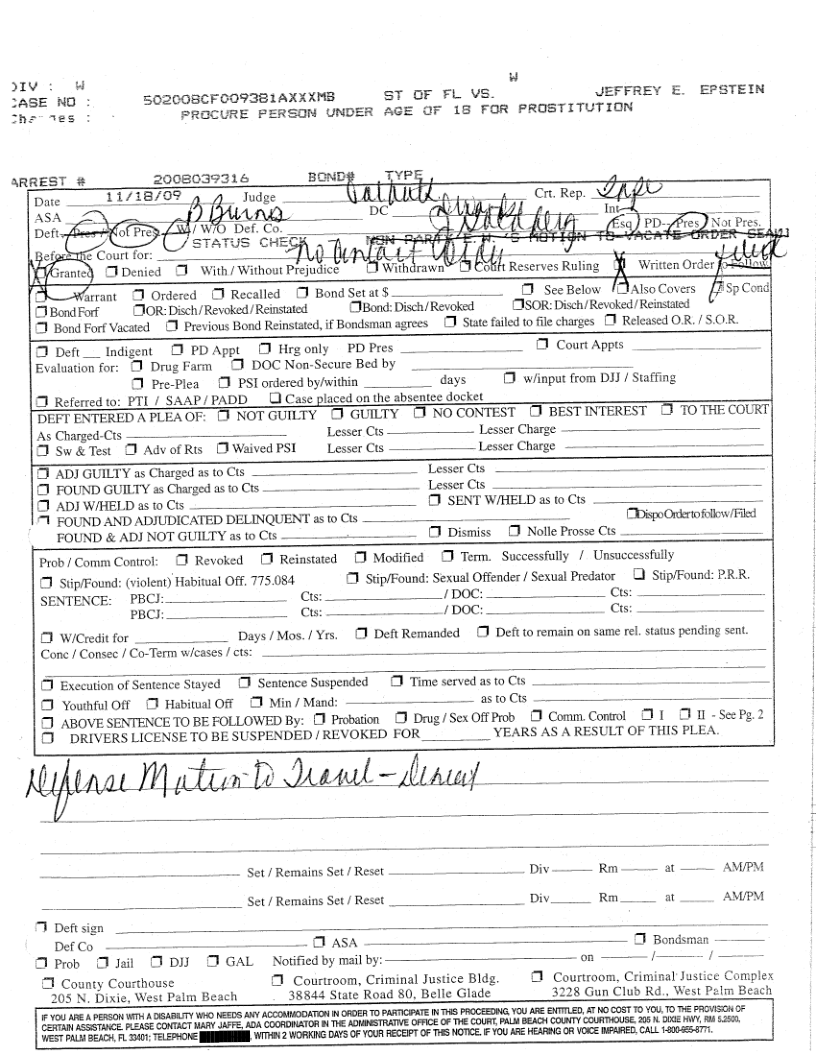 DIV : W W
CASE NO : 502008CF009381AXXXMB ST OF FL VS. JEFFREY E. EPSTEIN
PROCURE PERSON UNDER AGE OF 18 FOR PROSTITUTION
ARREST # 2008039316 BOND# TYPE
Date 11/18/09 Judge Crt. Rep.
ASA B Burns DC Int
Deft- Pres / Not Pres W / W/O Def. Co. J Goldberg Esq PD-- Pres Not Pres.
STATUS CHECK NON PARTY E.W. 'S MOTION TO VACATE ORDER SEALI
Before the Court for: No Contact Order filed
Granted Denied With / Without Prejudice Withdrawn Court Reserves Ruling Written Order to Follow
Warrant Ordered Recalled Bond Set at $ See Below Also Covers Sp Cond
Bond Forf OR: Disch/Revoked/Reinstated Bond: Disch/Revoked SOR: Disch/Revoked/Reinstated
Bond Forf Vacated Previous Bond Reinstated, if Bondsman agrees State failed to file charges Released O.R. / S.O.R.
Deft Indigent PD Appt Hrg only PD Pres Court Appts
Evaluation for: Drug Farm DOC Non-Secure Bed by
Pre-Plea PSI ordered by/within days w/input from DJJ / Staffing
Referred to: PTI / SAAP / PADD Case placed on the absentee docket
DEFT ENTERED A PLEA OF: NOT GUILTY GUILTY NO CONTEST BEST INTEREST TO THE COURT
As Charged-Cts Lesser Cts Lesser Charge
Sw & Test Adv of Rts Waived PSI Lesser Cts Lesser Charge
ADJ GUILTY as Charged as to Cts Lesser Cts
FOUND GUILTY as Charged as to Cts Lesser Cts
ADJ W/HELD as to Cts SENT W/HELD as to Cts
FOUND AND ADJUDICATED DELINQUENT as to Cts Dispo Order to follow/Filed
FOUND & ADJ NOT GUILTY as to Cts Dismiss Nolle Prosse Cts
Prob / Comm Control: Revoked Reinstated Modified Term. Successfully / Unsuccessfully
Stip/Found: (violent) Habitual Off. 775.084 Stip/Found: Sexual Offender / Sexual Predator Stip/Found: P.R.R.
SENTENCE: PBCJ: Cts: / DOC: Cts:
PBCJ: Cts: / DOC: Cts:
W/Credit for Days / Mos. / Yrs. Deft Remanded Deft to remain on same rel. status pending sent.
Conc / Consec / Co-Term w/cases / cts:
Execution of Sentence Stayed Sentence Suspended Time served as to Cts
Youthful Off Habitual Off Min / Mand: as to Cts
ABOVE SENTENCE TO BE FOLLOWED By: Probation Drug / Sex Off Prob Comm. Control I II - See Pg. 2
DRIVERS LICENSE TO BE SUSPENDED / REVOKED FOR YEARS AS A RESULT OF THIS PLEA.
Defense Motion to Travel - Denied
Set / Remains Set / Reset Div Rm at AM/PM
Set / Remains Set / Reset Div Rm at AM/PM
Deft sign
Def Co ASA Bondsman
Prob Jail DJJ GAL Notified by mail by: on / /
County Courthouse Courtroom, Criminal Justice Bldg. Courtroom, Criminal Justice Complex
205 N. Dixie, West Palm Beach 38844 State Road 80, Belle Glade 3228 Gun Club Rd., West Palm Beach
IF YOU ARE A PERSON WITH A DISABILITY WHO NEEDS ANY ACCOMMODATION IN ORDER TO PARTICIPATE IN THIS PROCEEDING, YOU ARE ENTITLED, AT NO COST TO YOU, TO THE PROVISION OF
CERTAIN ASSISTANCE. PLEASE CONTACT MARY JAFFE, ADA COORDINATOR IN THE ADMINISTRATIVE OFFICE OF THE COURT, PALM BEACH COUNTY COURTHOUSE, 205 N. DIXIE HWY, RM 5.2500,
WEST PALM BEACH, FL 33401; TELEPHONE WITHIN 2 WORKING DAYS OF YOUR RECEIPT OF THIS NOTICE. IF YOU ARE HEARING OR VOICE IMPAIRED, CALL 1-800-955-8771.